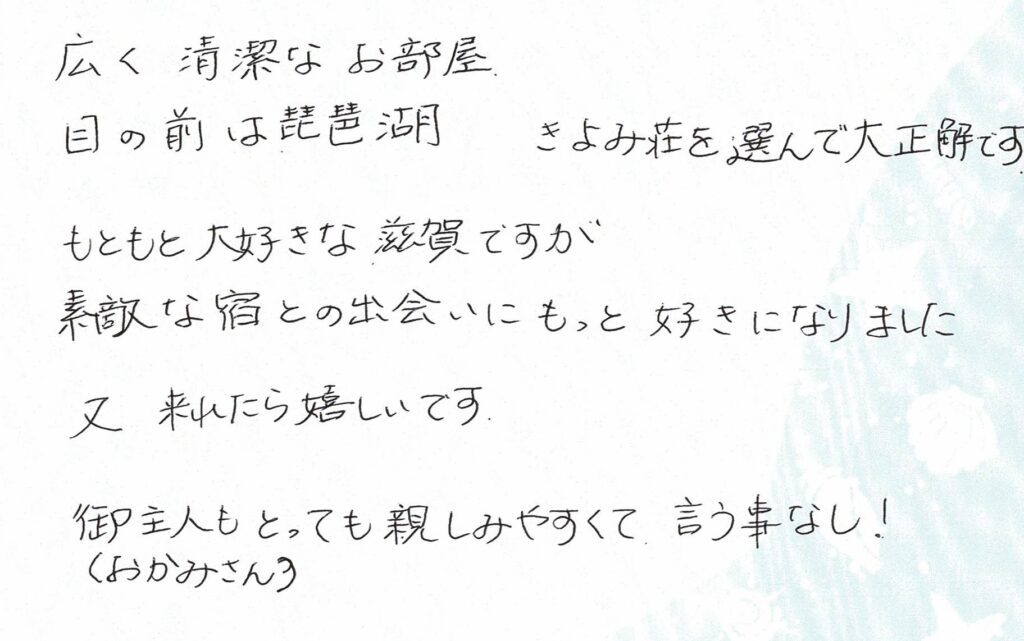 広く 清潔な お部屋.
目の前は琵琶湖 きよみ荘を選んで大正解です.
もともと大好きな 滋賀ですが
素敵な宿との出会いにもっと 好きになりました
又 来れたら嬉しいです.
御主人もとっても親しみやすくて. 言う事なし!
(おかみさん)